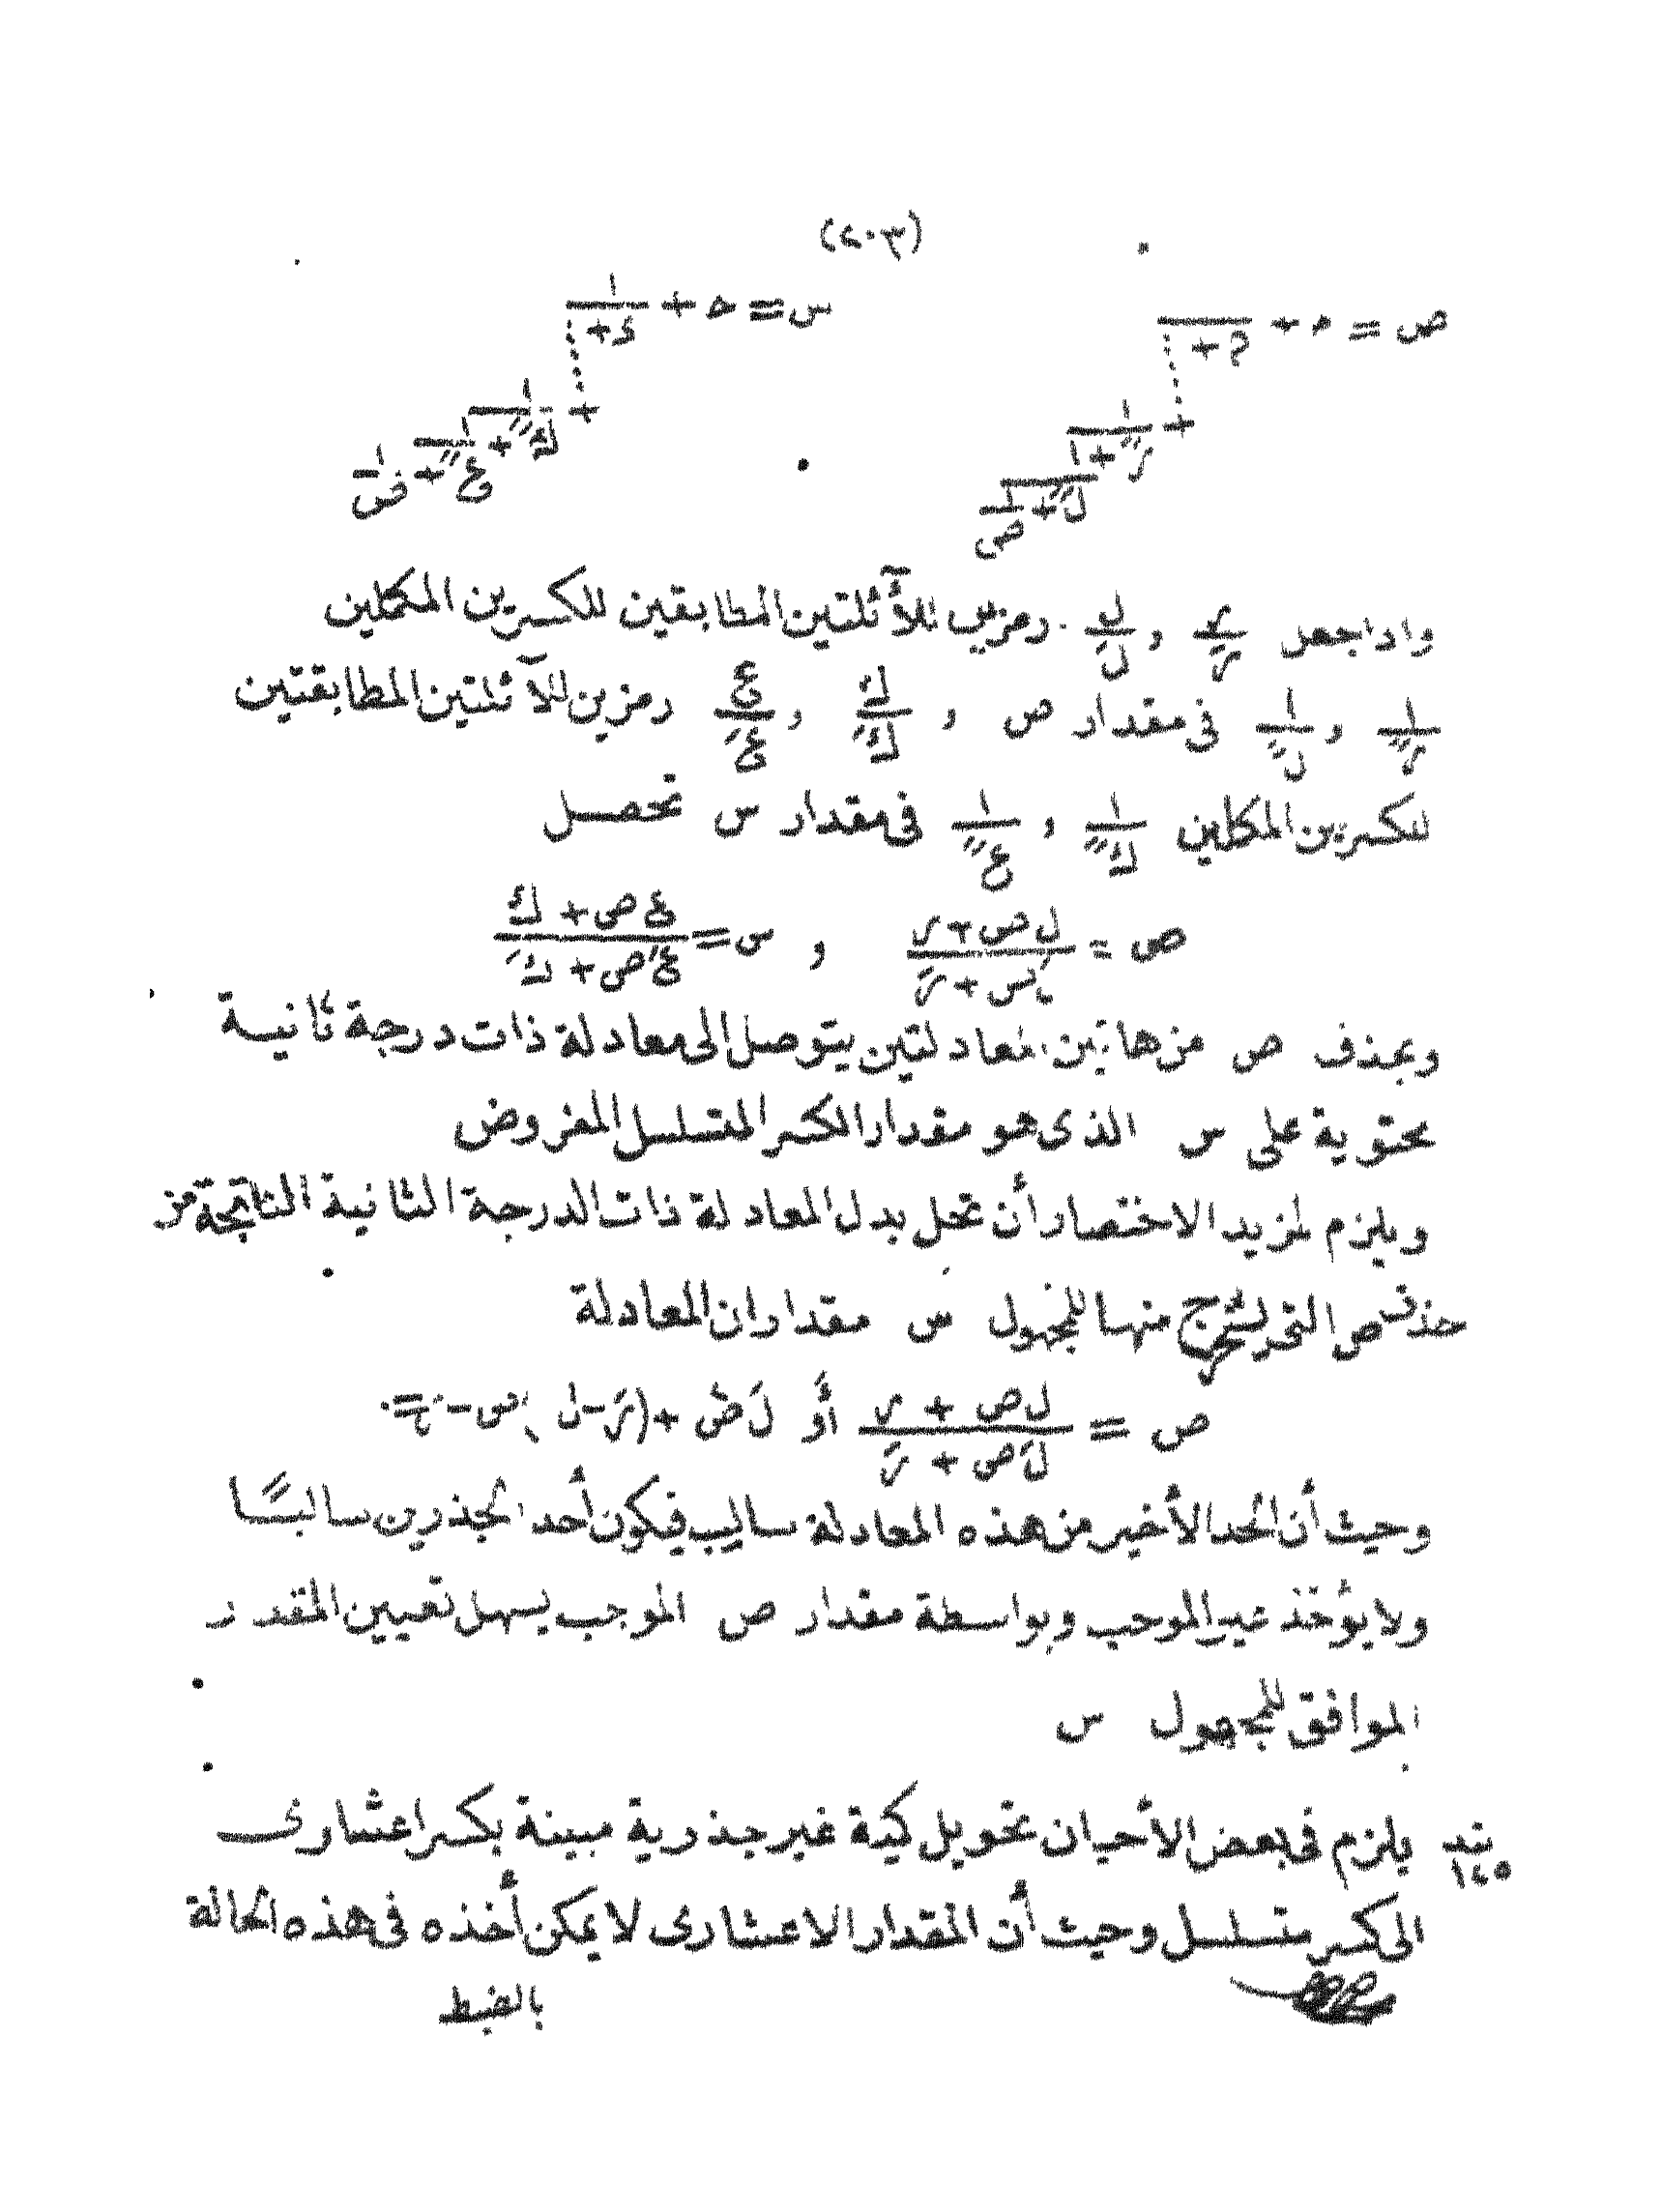 (٢٠٣)
ص = م + ١/(م + ... + ١/(ر″ + ١/(ل″ + ١/ص)))
س = ه + ١/(ء + ... + ١/(ك″ + ١/(ع″ + ١/ص)))
واذاجعل ر/ر′ و ل/ل′ رمزين للآثلتين المطابقين للكسرين المكملين
١/ر″ و ١/ل″ فى مقدار ص و ك/ك′ و ع/ع′ رمزين للآثلتين المطابقتين
للكسرين المكملين ١/ك″ و ١/ع″ فى مقدار س تحصل
ص = (ل ص + ر)/(ل′ ص + ر′) و س = (ع ص + ك)/(ع′ ص + ك′)
وبحذف ص من هاتين المعادلتين يتوصل الى معادلة ذات درجة ثانية
محتوية على س الذى هو مقدار الكسر المتسلسل المفروض
ويلزم لمزيد الاختصار أن تحل بدل المعادلة ذات الدرجة الثانية الناتجة من
حذف ص التى يستخرج منها للمجهول س مقداران المعادلة
ص = (ل ص + ر)/(ل′ ص + ر′) أو ل′ ص٢ + (ر′ - ل) ص - ر = ٠
وحيث أن الحد الأخير من هذه المعادلة سالب فيكون أحد الجذرين سالبًا
ولا يؤخذ غير الموجب وبواسطة مقدار ص الموجب يسهل تعيين المقدار
الموافق للمجهول س
بند ١٤٥ يلزم فى بعض الأحيان تحويل كمية غير جذرية مبينة بكسر اعشارى
الى كسر متسلسل وحيث أن المقدار الاعشارى لا يمكن أخذه فى هذه الحالة
بالضبط